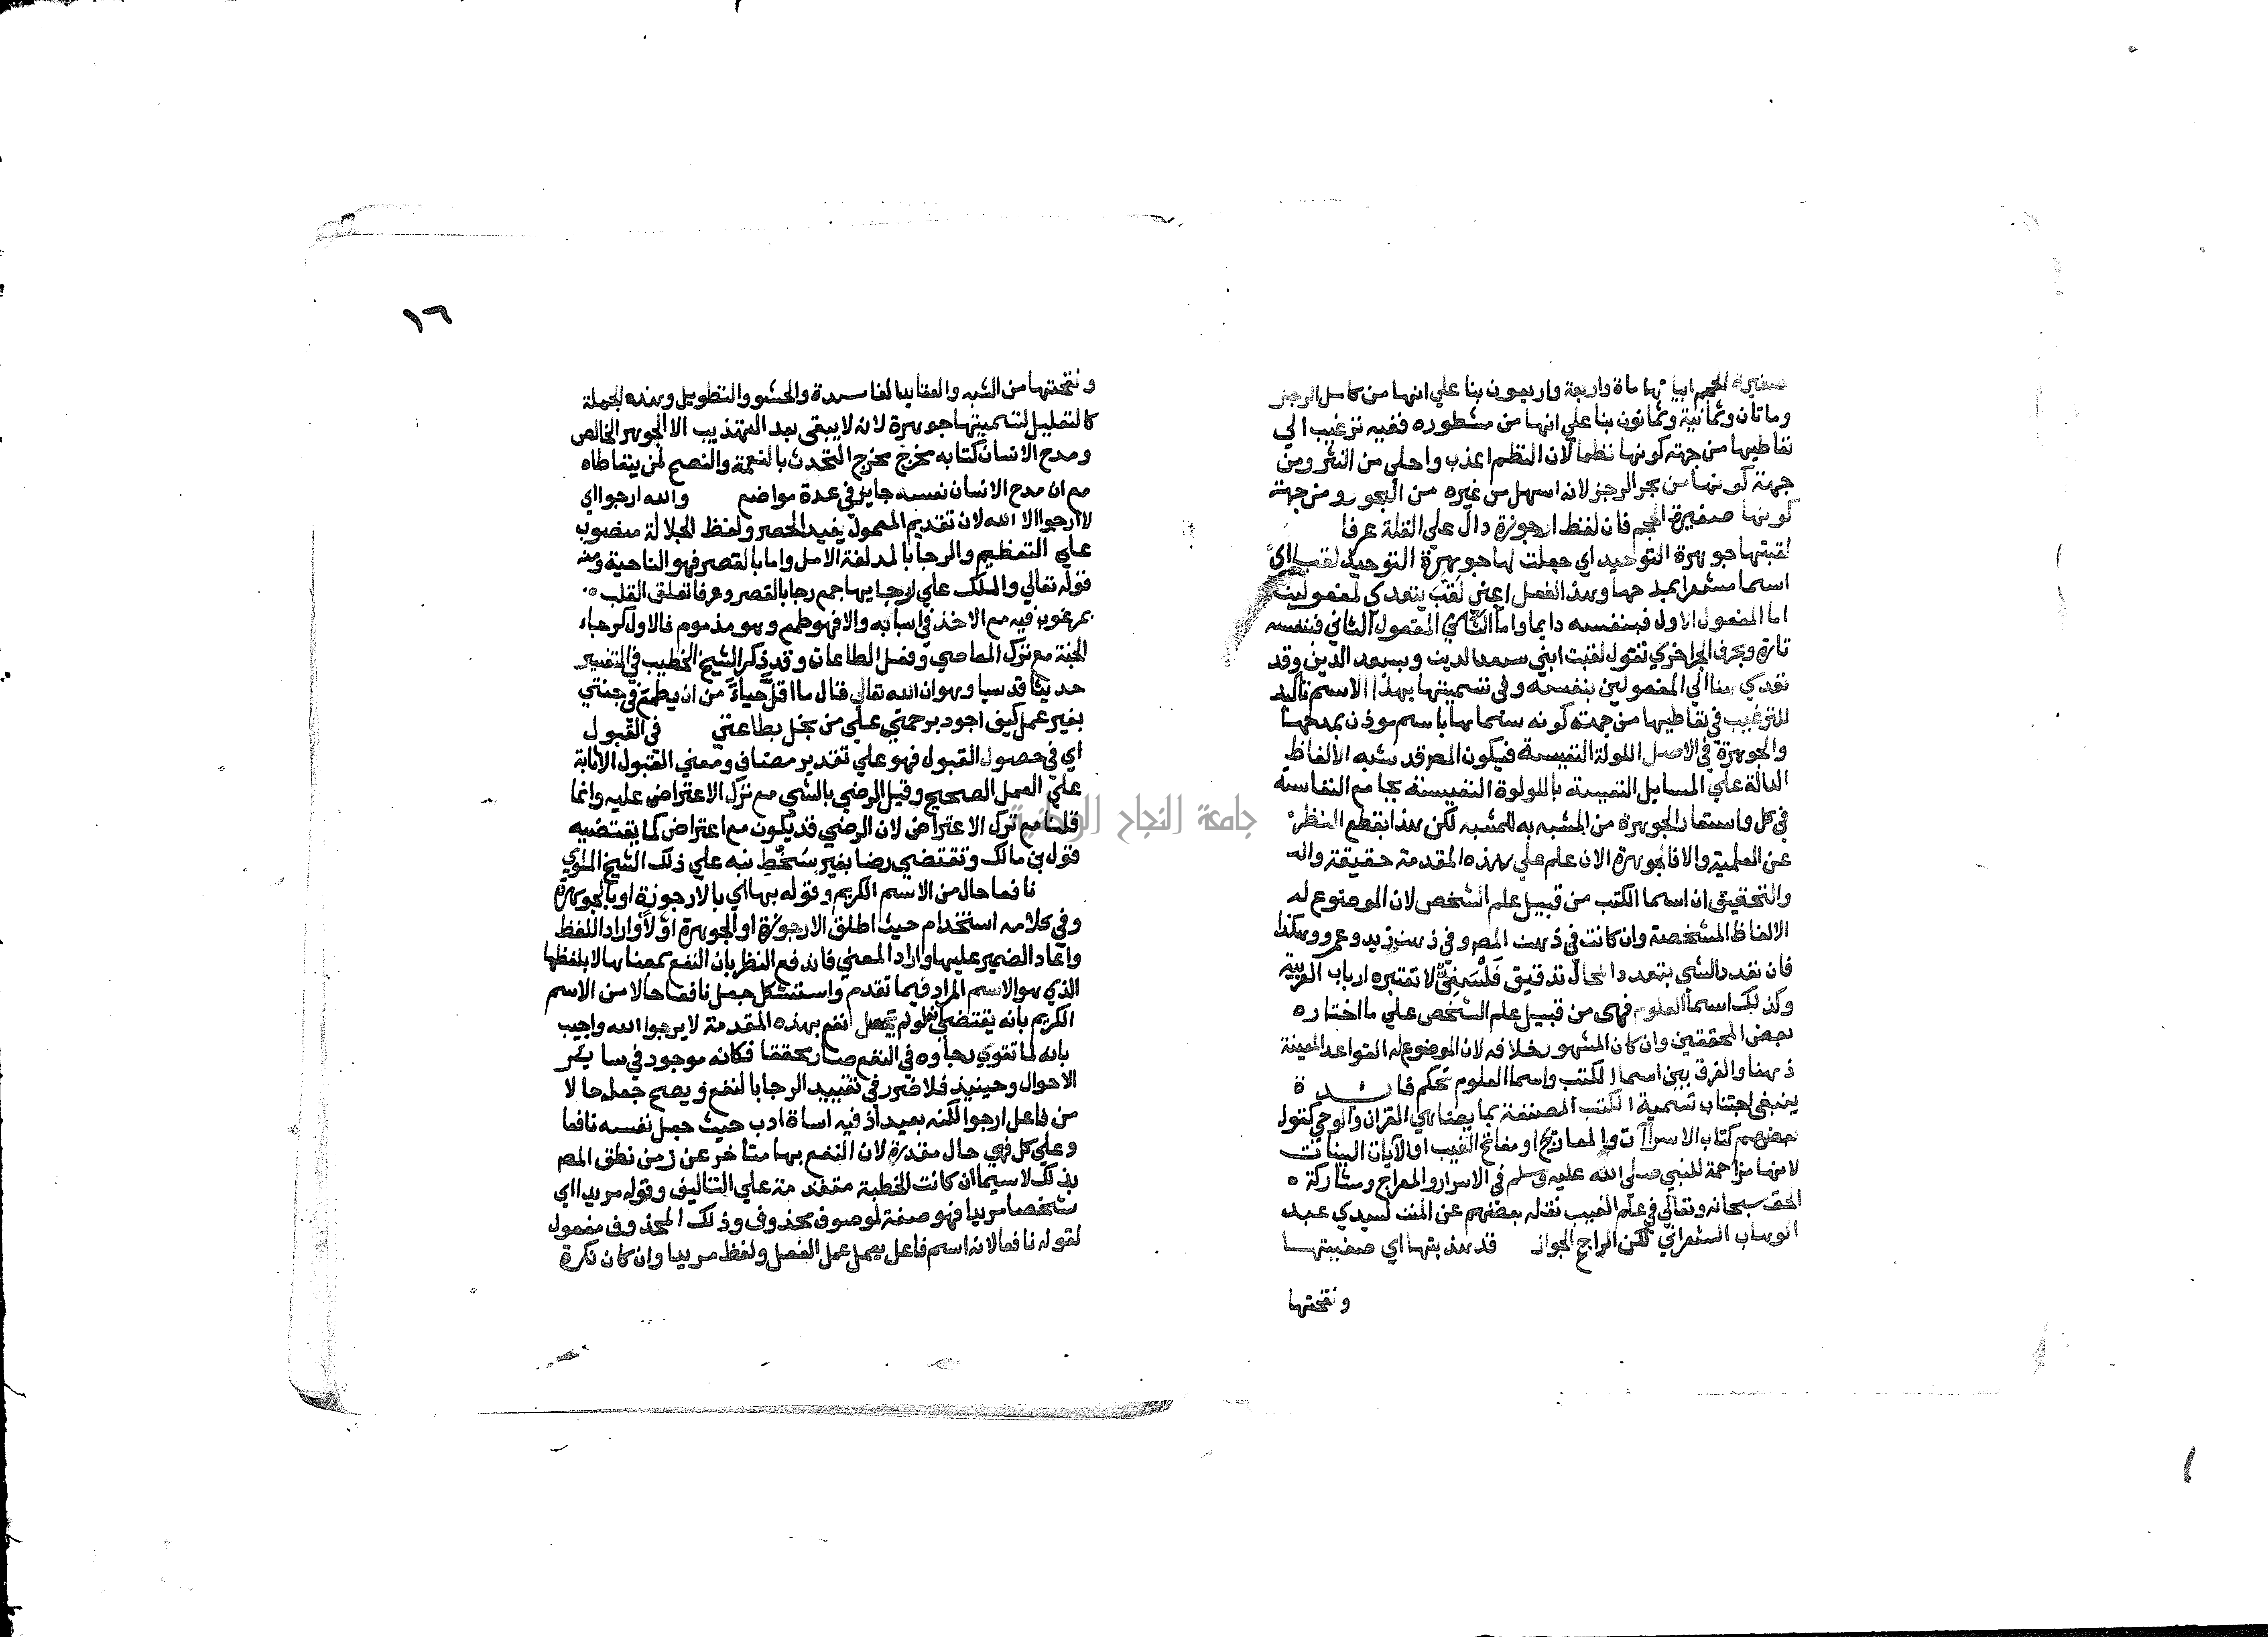 صغيرة الحجم ابياتها ماة واربعة واربعون بنا علي انها من كامل الرجز
وماتان وثمانية وثمانون بنا علي انها من مشطوره ففيه ترغيب الي
تعاطيها من جهة كونها نظما لان النظم اعذب واحلي من النثر ومن
جهة كونها من بحر الرجز لانه اسهل من غيره من البحور ومن جهة
كونها صغيرة الحجم فان لفظ ارجوزة دال علي القلة عرفا
لقبتها جوهرة التوحيد اي جعلت لها جوهرة التوحيد لقبا اي
اسما مشعرا بمدحها وهذا الفعل اعني لقب يتعدي لمفعولين
اما المفعول الاول فبنفسه دايما واما الثاني المفعول الثاني فبنفسه
تارة وبحرف الجر اخري تقول لقبت ابني سعد الدين وبسعد الدين وقد
تعدي هنا الي المفعولين بنفسه وفي تسميتها بهذا الاسم تاكيد
للترغيب في تعاطيها من جهة كونه سماها باسم موذن بمدحها
والجوهرة في الاصل اللولوة النفيسة فيكون المصر قد شبه الالفاظ
الدالة علي المسايل النفيسة باللولوة النفيسة بجامع النفاسة
في كل واستعار الجوهرة من المشبه به للمشبه لكن هذا بقطع النظر
عن العلمية والا فالجوهرة الان علم علي هذه المقدمة حقيقة
والتحقيق ان اسما الكتب من قبيل علم الشخص لان الموضوع له
الالفاظ المشخصة وان كانت في ذهن المصر وفي ذهن زيد وعمرو وهكذا
فان تعدد الشي بتعدد المحال تدقيق فلسفي لا تعتبره ارباب العربية
وكذلك اسما العلوم فهي من قبيل علم الشخص علي ما اختاره
بعض المحققين وان كان المشهور خلافه لان الموضوع له القواعد المعينة
ذهنا والفرق بين اسما الكتب واسما العلوم تحكم فايدة
ينبغي اجتناب تسمية الكتب المصنفة بما يضاهي القران والوحي كقول
بعضهم كتاب الاسراآت والمعاريج او مفاتح الغيب او الآيات البينات
لانها مزاحمة للنبي صلي الله عليه وسلم في الاسرار والمعراج ومشاركة
الحق سبحانه وتعالي في علم الغيب نقله بعضهم عن المنن لسيدي عبد
الوهاب الشعراني لكن الراجح الجواز قد هذبتها اي صفيتها
ونقحتها
١٦
ونقحتها من الشبه والعقايد الفاسدة والحشو والتطويل وهذه الجملة
كالتعليل لتسميتها جوهرة لانه لا يبقي بعد التهذيب الا الجوهر الخالص
ومدح الانسان كتابه مخرج مخرج التحدث بالنعمة والنصح لمن يتعاطاه
مع ان مدح الانسان نفسه جايز في عدة مواضع والله ارجوا اي
لا ارجوا الا الله لان تقديم المعمول يفيد الحصر ولفظ الجلالة منصوب
علي التعظيم والرجا بالمد لغة الامل واما بالقصر فهو الناحية ومنه
قوله تعالي والملك علي ارجايها جمع رجا بالقصر وعرفا تعلق القلب
بمرغوب فيه مع الاخذ في اسبابه والا فهو طمع وهو مذموم فالاول كرجاء
الجنة مع ترك المعاصي وفعل الطاعات وقد ذكر الشيخ الخطيب في التفسير
حديثا قدسيا وهو ان الله تعالي قال ما اقل حياء من ان يطمع في جنتي
بغير عمل كيف اجود برحمتي علي من بخل بطاعتي في القبول
اي في حصول القبول فهو علي تقدير مضاف ومعني القبول الاثابة
علي العمل الصحيح وقيل الرضي بالشي مع ترك الاعتراض عليه وانما
قلنا مع ترك الاعتراض لان الرضي قد يكون مع اعتراض كما يقتضيه
قول بن مالك وتقتضي رضا بغير سخط نبه علي ذلك الشيخ الملوي
نافعا حال من الاسم الكريم وقوله بها اي بالارجوزة او بالجوهرة
وفي كلامه استخدام حيث اطلق الارجوزة او الجوهرة اولا واراد اللفظ
واعاد الضمير عليها واراد المعني فاندفع النظر بان النفع بمعناها لا بلفظها
الذي هو الاسم المراد فيما تقدم واستشكل جعل نافعا حالا من الاسم
الكريم بانه يقتضي انه لو لم يحصل نفع بهذه المقدمة لا يرجوا الله واجيب
بانه لما تقوي رجاوه في النفع صار محققا فكانه موجود في ساير
الاحوال وحينيذ فلا ضرر في تقييد الرجا بالنفع ويصح جعله حالا
من فاعل ارجوا لكنه بعيد اذ فيه اساة ادب حيث جعل نفسه نافعا
وعلي كل فهي حال مقدرة لان النفع بها متاخر عن زمن نطق المصر
بذلك لا سيما ان كانت الخطبة متقدمة علي التاليف وقوله مريدا اي
شخصا مريدا فهو صفة لموصوف محذوف وذلك المحذوف مفعول
لقوله نافعا لانه اسم فاعل يعمل عمل الفعل ولفظ مريدا وان كان نكرة
جامعة النجاح الوطنية